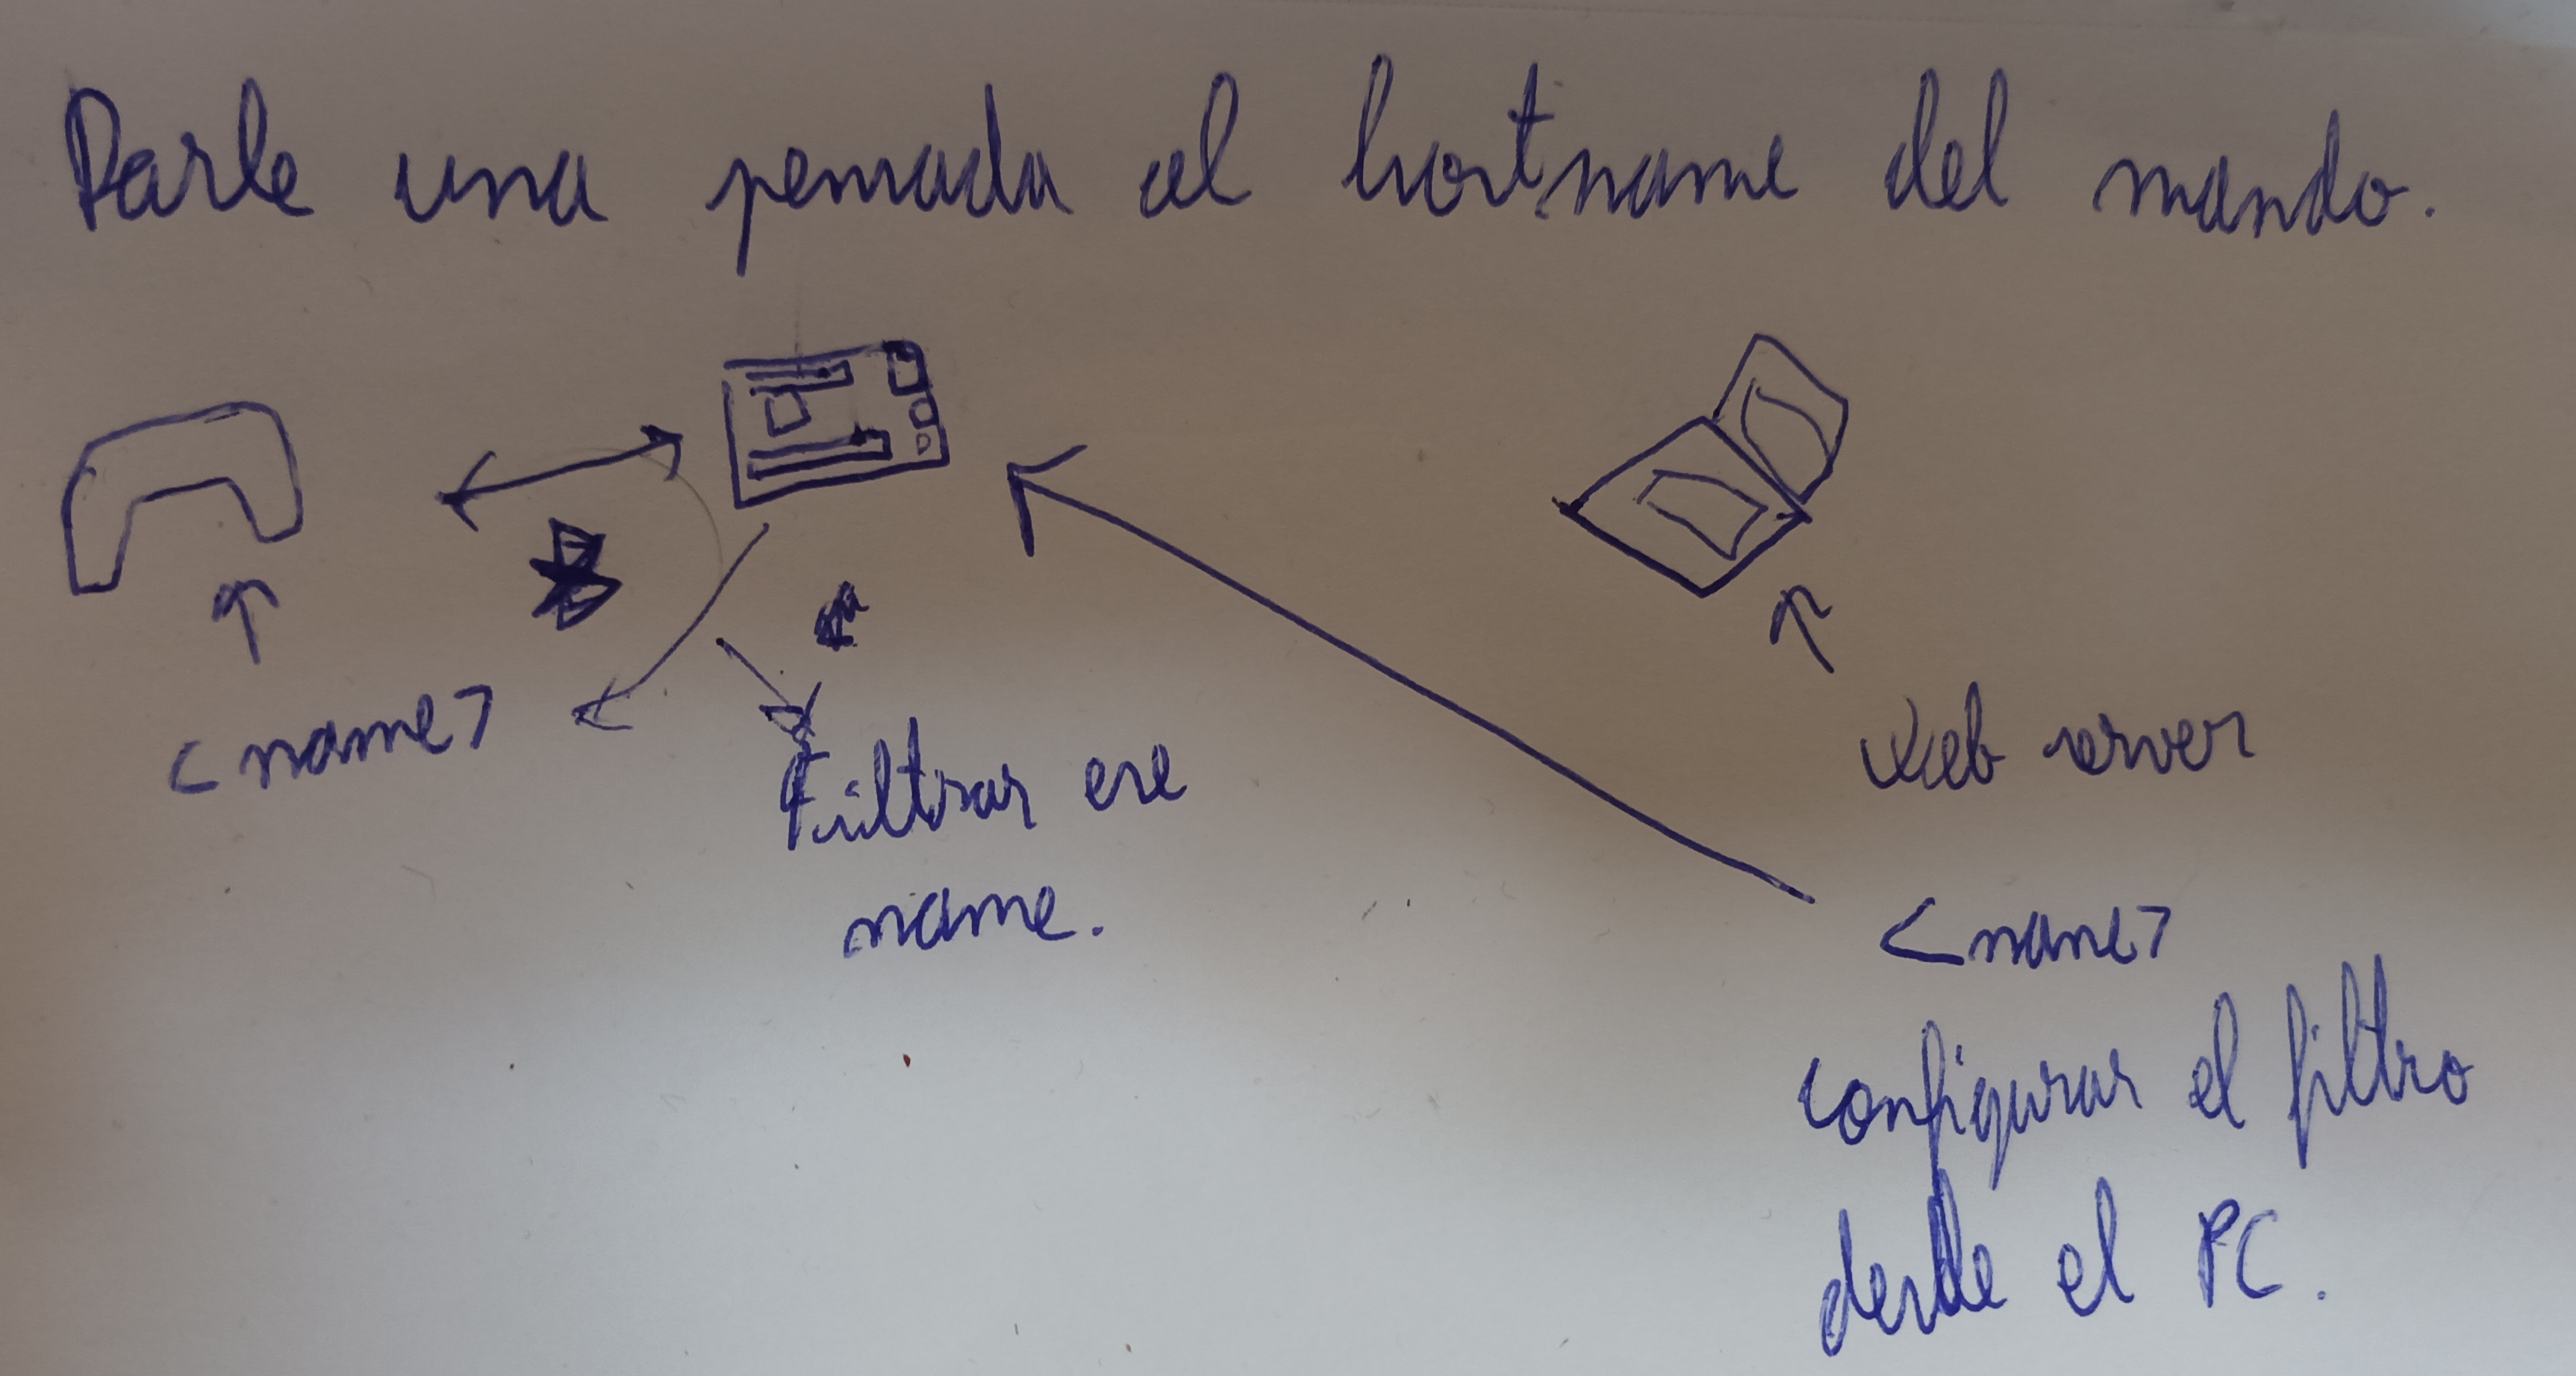 Darle una pensada al hostname del mando.
<name>
Filtrar ese
name.
Web server
<name>
configurar el filtro
desde el PC.